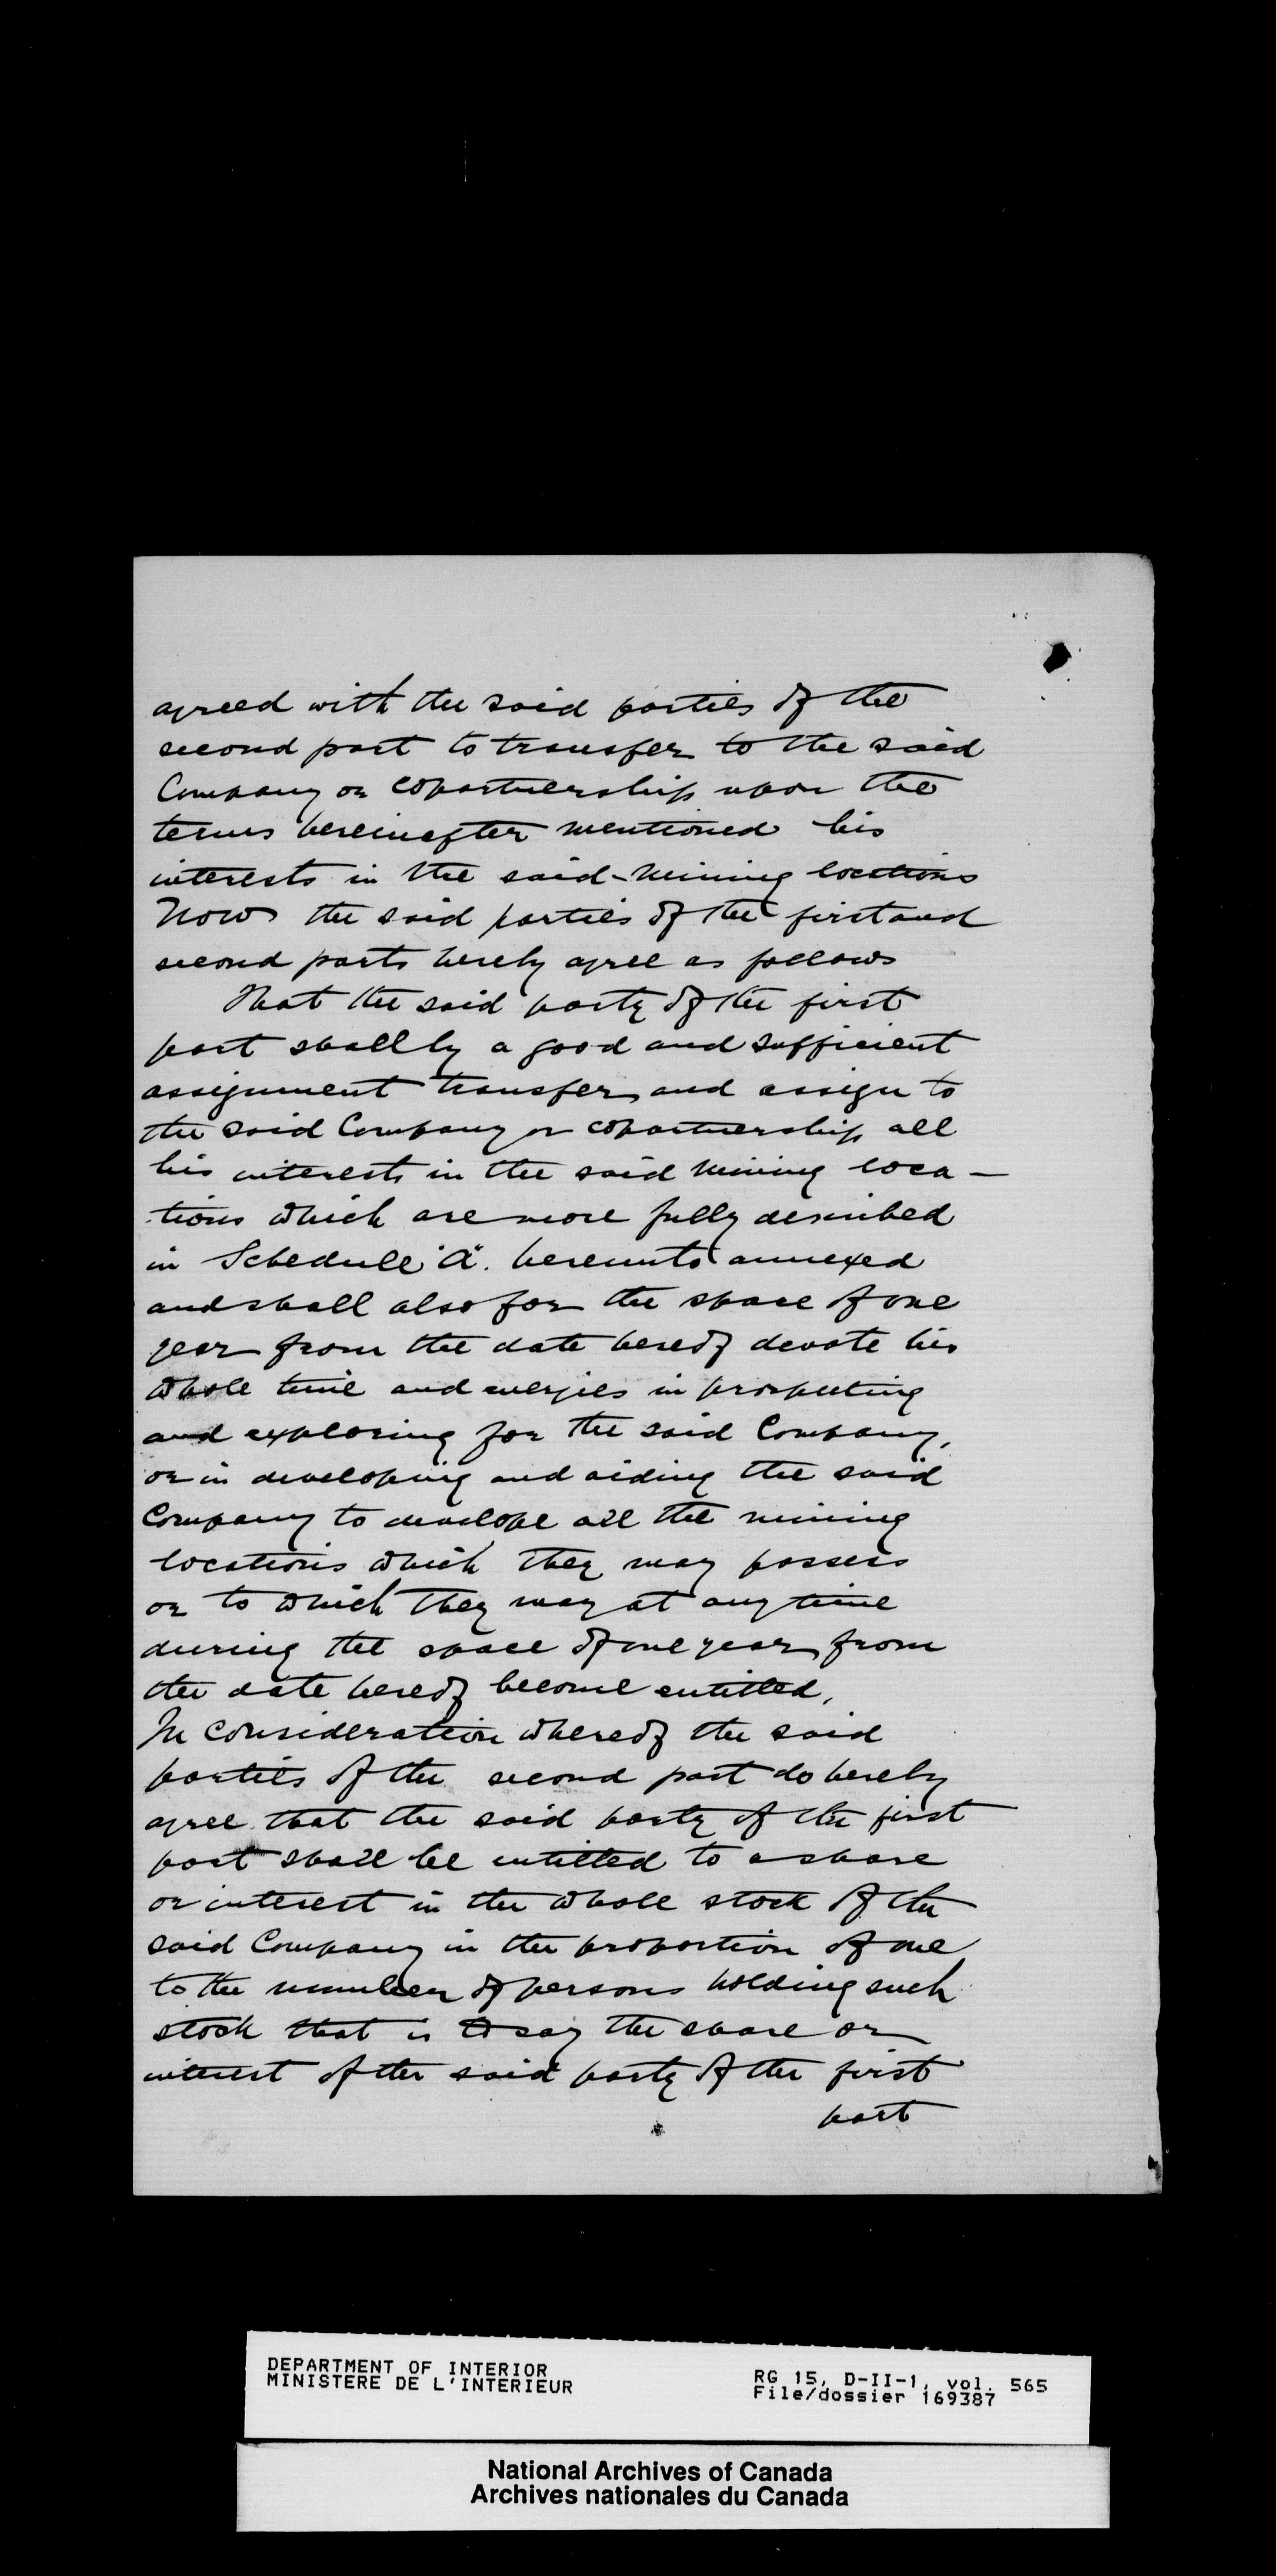 agreed with the said parties of the
second part to transfer to the said
Company or copartnership upon the
terms hereinafter mentioned his
interests in the said mining locations
Now the said parties of the first and
second parts hereby agree as follows
That the said party of the first
part shall by a good and sufficient
assignment transfer and assign to
the said Company or copartnership all
his interests in the said mining loca-
tions which are more fully described
in Schedule "A". hereunto annexed
and shall also for the space of one
year from the date hereof devote his
whole time and energies in prospecting
and exploring for the said Company,
or in developing and aiding the said
Company to develope all the mining
locations which they may possess
or to which they may at any time
during the space of one year from
the date hereof become entitled,
In consideration whereof the said
parties of the second part do hereby
agree that the said party of the first
part shall be entitled to a share
or interest in the whole stock of the
said Company in the proportion of one
to the number of persons holding such
stock that is to say the share or
interest of the said party of the first
part
DEPARTMENT OF INTERIOR
MINISTERE DE L'INTERIEUR
RG 15, D-II-1, vol. 565
File/dossier 169387
National Archives of Canada
Archives nationales du Canada